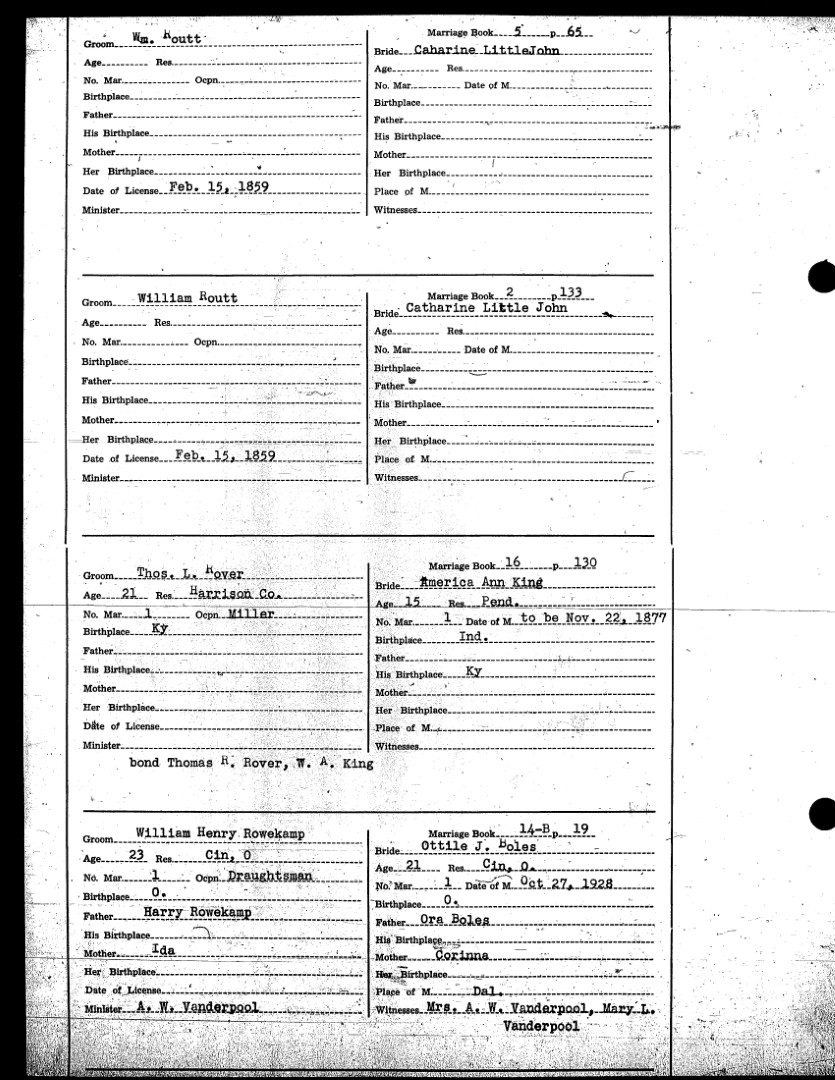 Groom Wm. Routt
Age Res.
No. Mar. Ocpn.
Birthplace
Father
His Birthplace
Mother
Her Birthplace
Date of License Feb. 15, 1859
Minister
Marriage Book 5 p. 65
Bride Caharine LittleJohn
Age Res.
No. Mar. Date of M.
Birthplace
Father
His Birthplace
Mother
Her Birthplace
Place of M.
Witnesses
Groom William Routt
Age Res.
No. Mar. Ocpn.
Birthplace
Father
His Birthplace
Mother
Her Birthplace
Date of License Feb. 15, 1859
Minister
Marriage Book 2 p. 133
Bride Catharine Little John
Age Res.
No. Mar. Date of M.
Birthplace
Father
His Birthplace
Mother
Her Birthplace
Place of M.
Witnesses
Groom Thos. L. Rover
Age 21 Res. Harrison Co.
No. Mar. 1 Ocpn. Miller
Birthplace Ky
Father
His Birthplace
Mother
Her Birthplace
Date of License
Minister
Marriage Book 16 p. 130
Bride America Ann King
Age 15 Res. Pend.
No. Mar. 1 Date of M. to be Nov. 22, 1877
Birthplace Ind.
Father
His Birthplace Ky
Mother
Her Birthplace
Place of M.
Witnesses
bond Thomas R. Rover, W. A. King
Groom William Henry Rowekamp
Age 23 Res. Cin, O
No. Mar. 1 Ocpn. Draughtsman
Birthplace O.
Father Harry Rowekamp
His Birthplace
Mother Ida
Her Birthplace
Date of License
Minister A. W. Vanderpool
Marriage Book 14-B p. 19
Bride Ottile J. Boles
Age 21 Res. Cin, O.
No. Mar. 1 Date of M. Oct 27, 1928
Birthplace O.
Father Ora Boles
His Birthplace
Mother Corinna
Her Birthplace
Place of M. Dal.
Witnesses Mrs. A. W. Vanderpool, Mary L.
Vanderpool